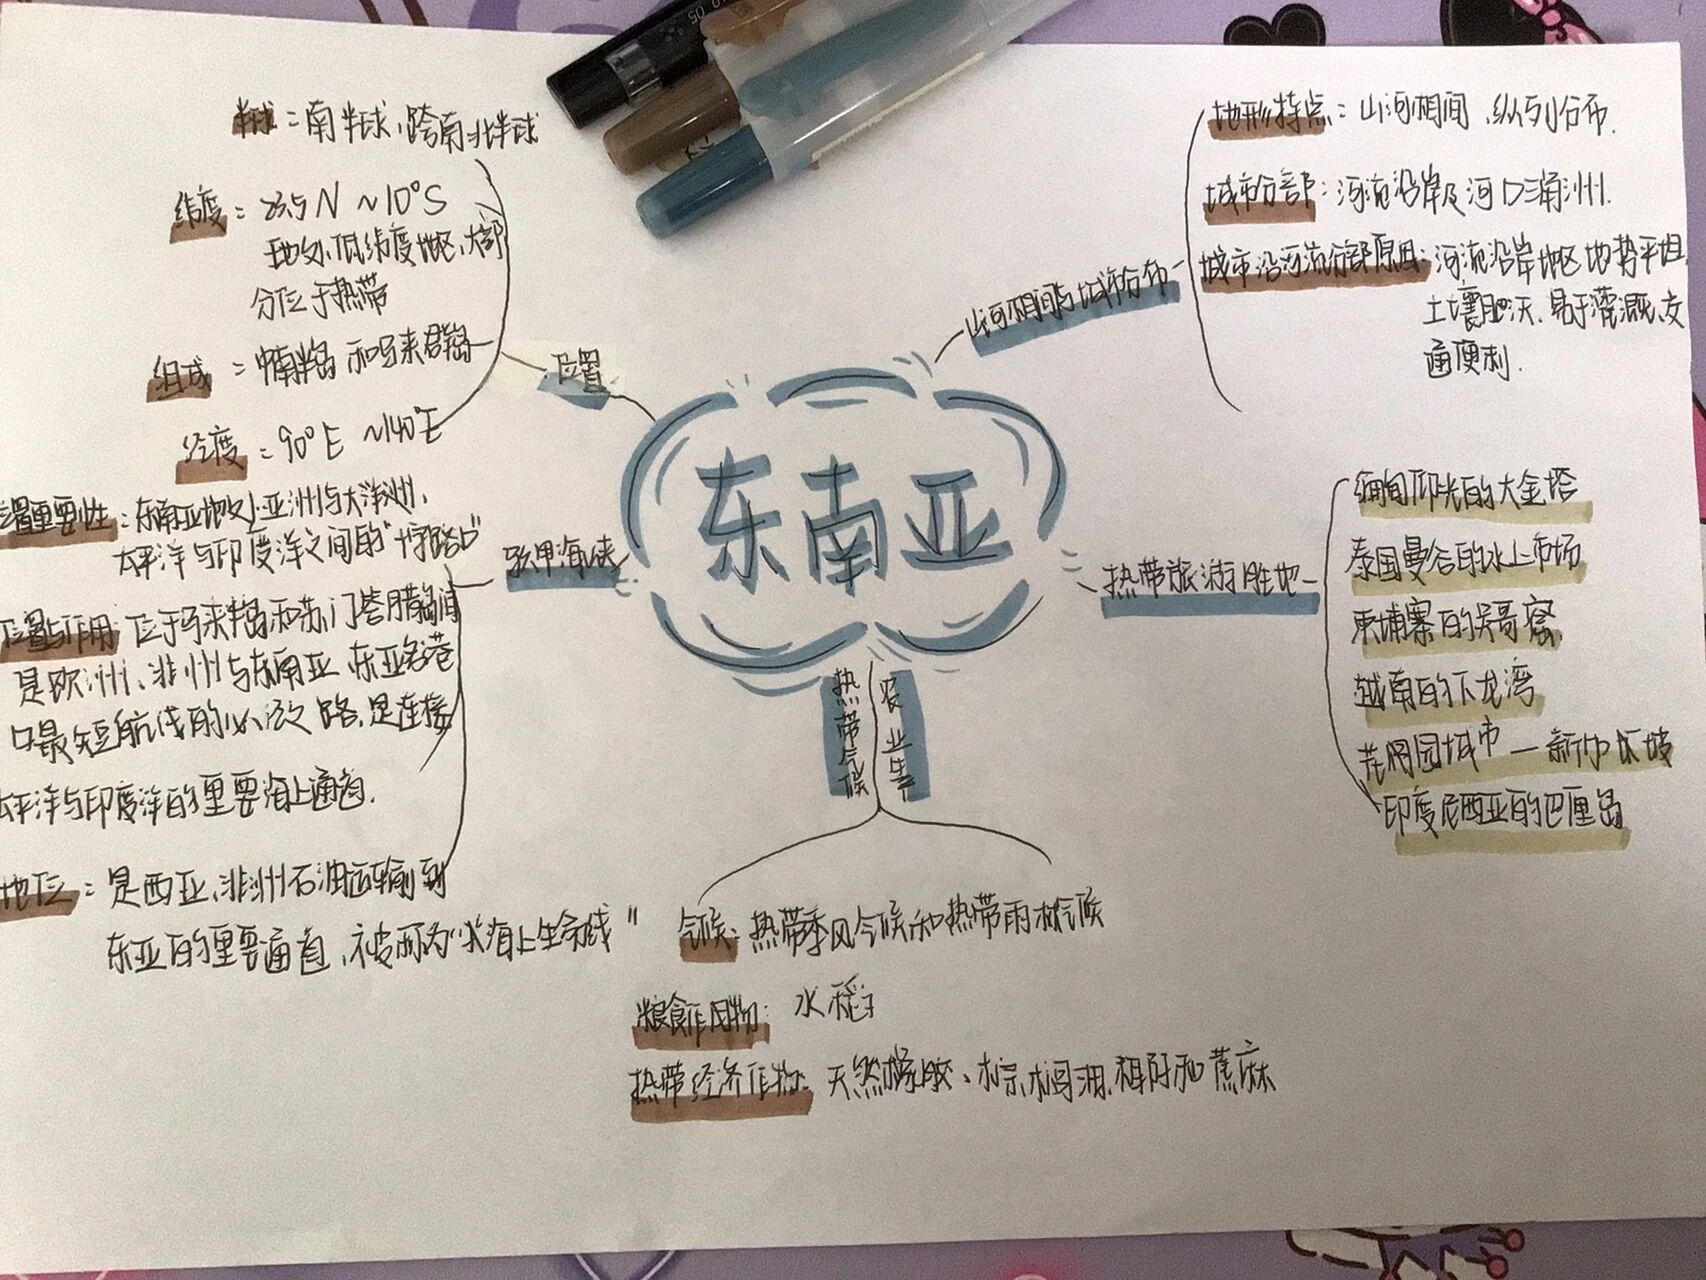 东南亚
位置
半球：南半球、跨南北半球
纬度：23.5N~10°S
地处低纬度地区、大部
分位于热带
组成：中南半岛和马来群岛
经度：90°E~140°E
马六甲海峡
位置重要性：东南亚地处亚洲与大洋洲、
太平洋与印度洋之间的"十字路口"
位置与作用：位于马来半岛和苏门答腊岛间
是欧洲、非州与东南亚、东亚各港
口最短航线的必经之路，是连接
太平洋与印度洋的重要海上通道.
地位：是西亚、非州石油运输到
东亚的重要通道、被称为"海上生命线"
山河相间与城市分布
地形特点：山河相间、纵列分布.
城市分部：河流沿岸及河口三角洲.
城市沿河流分部原因：河流沿岸地区地势平坦,
土壤肥沃、易于灌溉、交
通便利.
热带旅游胜地
缅甸仰光的大金塔
泰国曼谷的水上市场
柬埔寨的吴哥窟
越南的下龙湾
花园城市—新加坡
印度尼西亚的巴厘岛
热带气候
农业生产
气候：热带季风气候和热带雨林气候
粮食作物：水稻
热带经济作物：天然橡胶、棕榈油、椰子和蕉麻